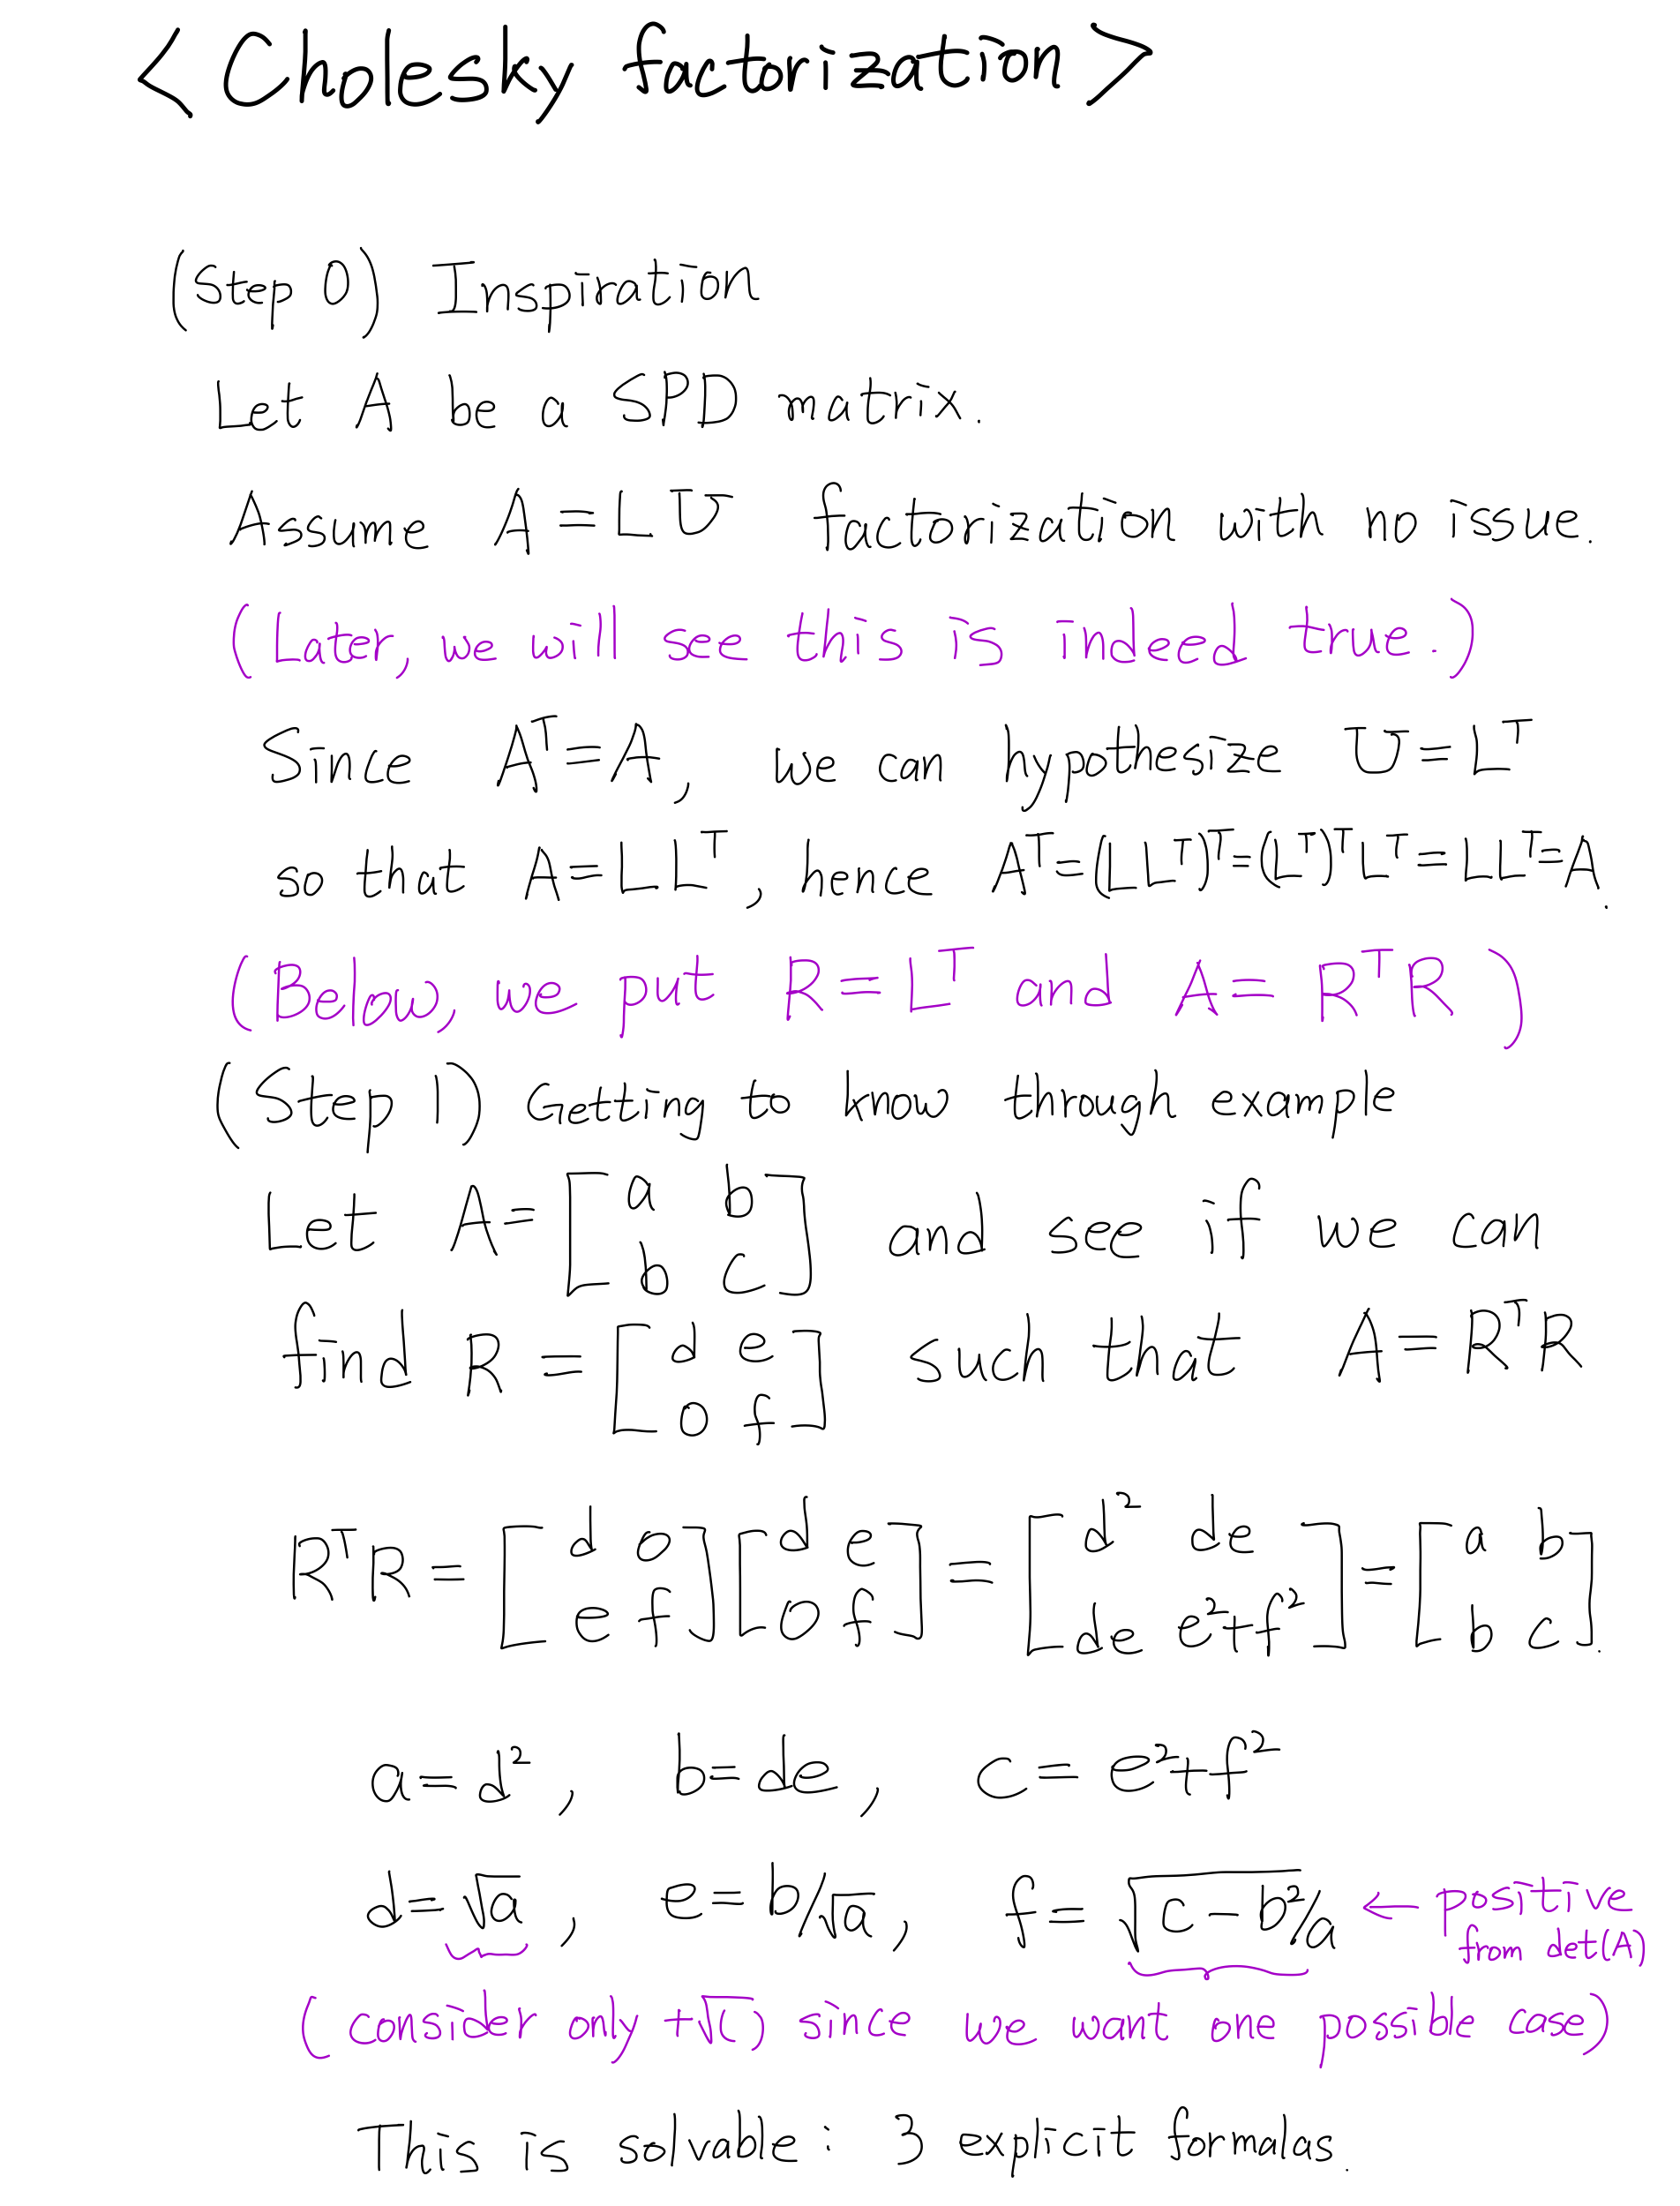 < Cholesky factorization >
(Step 0) Inspiration
Let A be a SPD matrix.
Assume A = LU factorization with no issue.
(Later, we will see this is indeed true.)
Since Aᵀ = A, we can hypothesize U = Lᵀ
so that A = LLᵀ, hence Aᵀ = (LLᵀ)ᵀ = (Lᵀ)ᵀLᵀ = LLᵀ = A.
(Below, we put R = Lᵀ and A = RᵀR)
(Step 1) Getting to know through example
Let A = [a b; b c] and see if we can
find R = [d e; 0 f] such that A = RᵀR
RᵀR = [d 0; e f][d e; 0 f] = [d² de; de e²+f²] = [a b; b c].
a = d², b = de, c = e²+f²
d = √a, e = b/√a, f = √(c − b²/a) ← positive from det(A)
(consider only +√( ) since we want one possible case)
This is solvable : 3 explicit formalas.